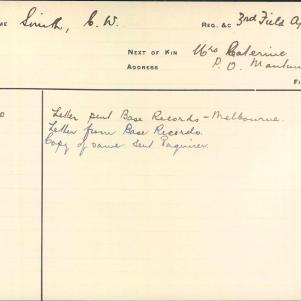 ME Smith, C. W. REG. &c 3rd Field A
NEXT OF KIN Mrs Caterine
ADDRESS P. O.
Letter sent Base Records - Melbourne.
Letter from Base Records.
Copy of same sent Enquirer.